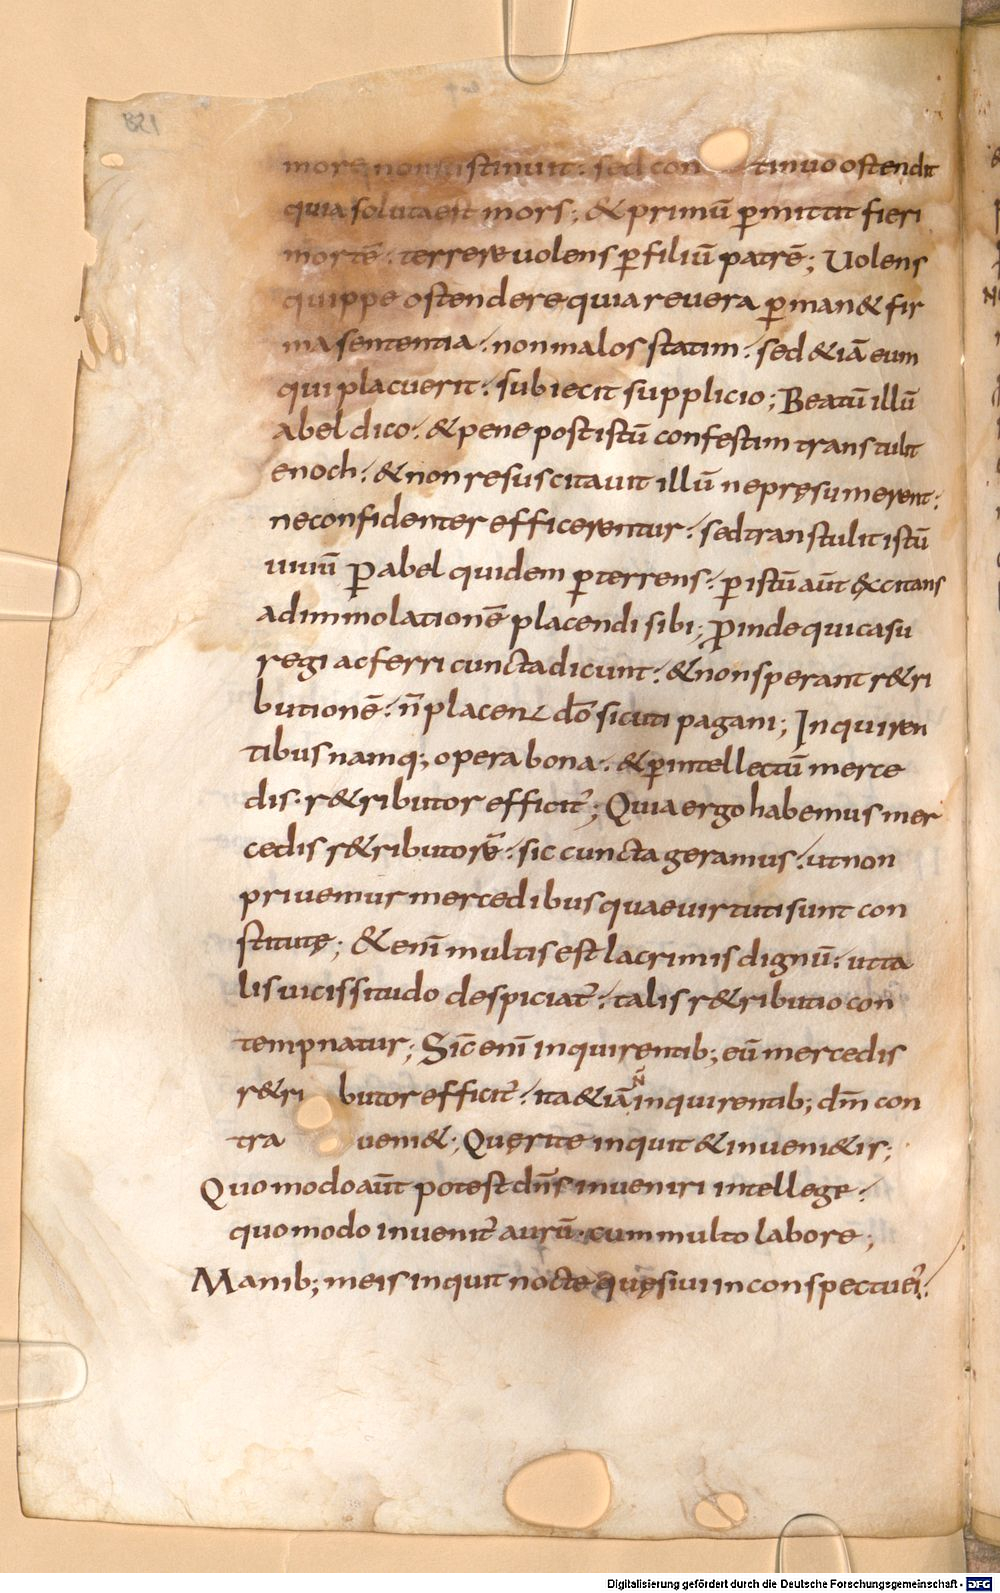 mors non extinuit. sed con tinuo ostendit
quia soluta est mors; & primū ꝑmittit fieri
mortē. terrere uolens ꝑ filiū patrē; Uolens
quippe ostendere quia reuera ꝑman& fir
ma sententia. non malos statim. sed &iā eum
qui placuerit. subiecit supplicio; Beatū illū
abel dico. & pene post istū confestim transtulit
enoch. & non resuscitauit illū ne pręsumerent.
ne confidenter efficerentur. sed transtulit istū
uiuū ꝑ abel quidem ꝑterrens. ꝑ istū aūt excitans
ad immolationē placendi sibi; ꝓinde qui casu
regi ac ferri cuncta dicunt. & non sperant r&ri
butionē. n̄ placent dō sicuti pagani; Inquiren
tibus namq; opera bona. & ꝑ intellectū merce
dis. r&ributor efficit̉; Quia ergo habemus mer
cedis r&ributorē. sic cuncta geramus. ut non
priuemur mercedibus quae uirtuti sunt con
stitutę; &enī multis est lacrimis dignū. ut ta
lis uicissitudo despiciat̉. talis r&ributio con
tempnatur; Sic̄ enī inquirentib; eū mercedis
r&ri butor efficit̉. ita &iā n̄ inquirentib; dm̄ con
tra ueni&; Quęrite inquit & inueni&is;
Quomodo aūt potest dn̄s inueniri intellege.
quomodo inuenit̉ aurū. cum multo labore;
Manib; meis inquit nocte quęsiui in conspectu eỉ.
821
Digitalisierung gefördert durch die Deutsche Forschungsgemeinschaft - DFG